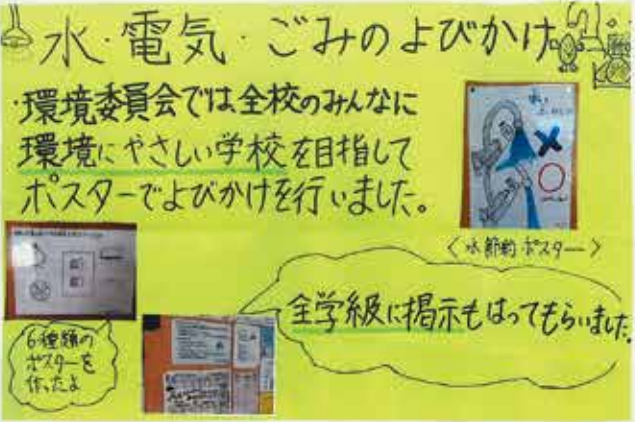 水・電気・ごみのよびかけ
・環境委員会では、全校のみんなに
環境にやさしい学校を目指して
ポスターでよびかけを行いました。
＜水節約ポスター＞
全学級に掲示もはってもらいました。
6種類の
ポスターを
作ったよ